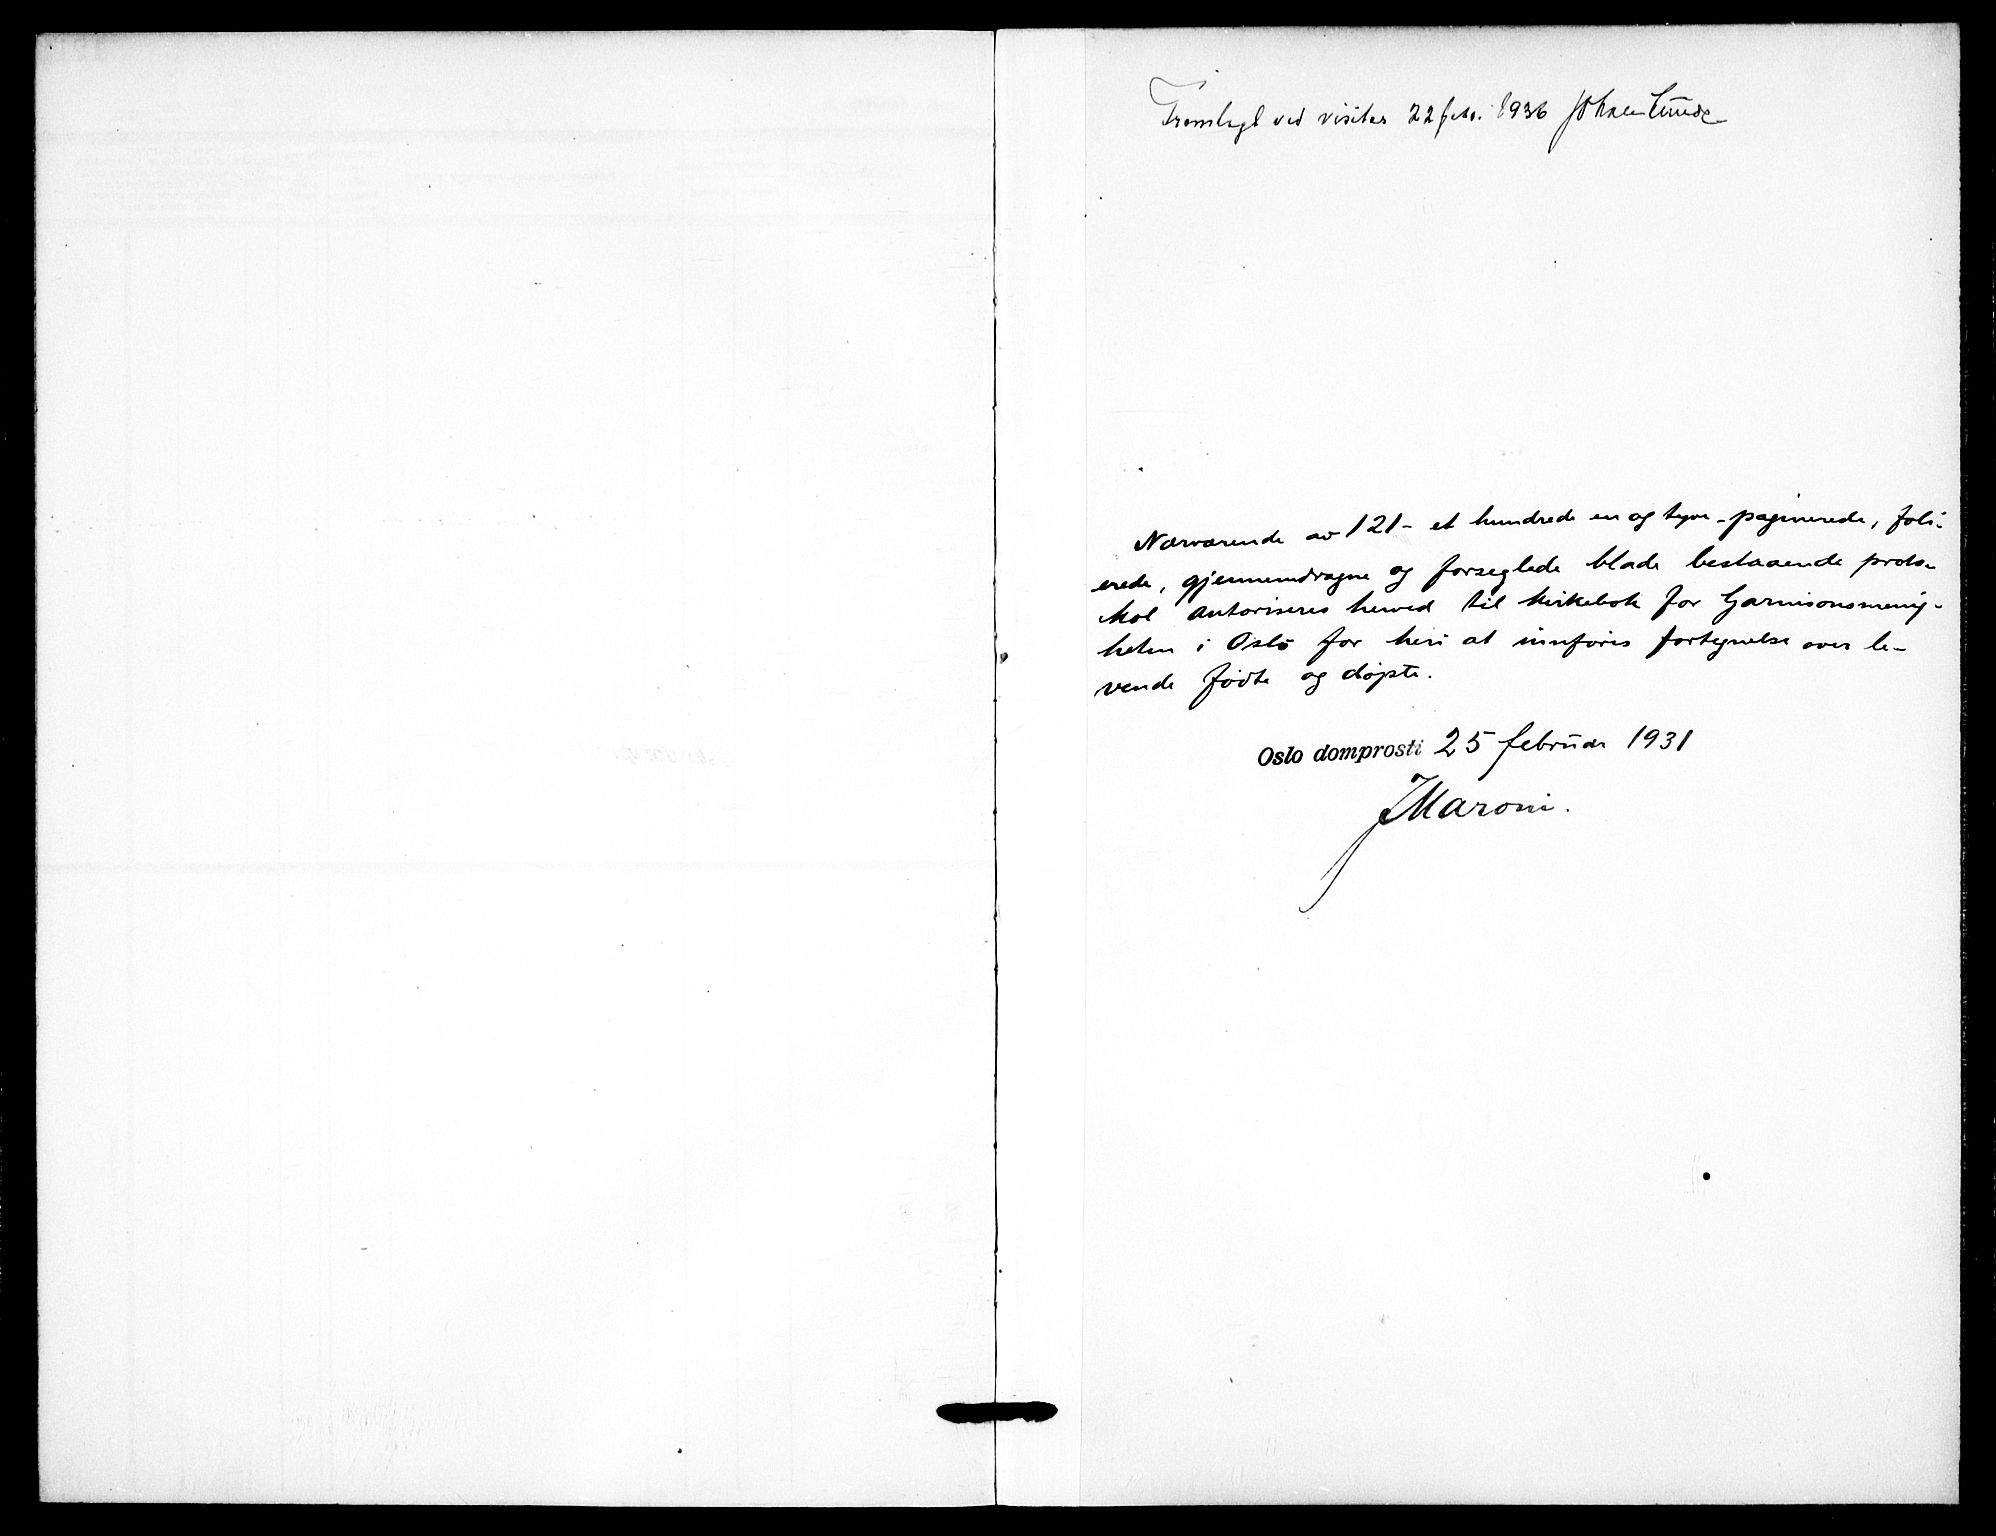 Fremlagt ved visitas 22 febr. 1936 Johan Lunde
Nærværende av 121 - et hundrede en og tyve - paginerede, foli-
erede, gjennemdragne og forseglede blade bestaaende proto-
kol autoriseres herved til kirkebok for Garnisonsmenig-
heten i Oslo for heri at innføres fortegnelse over le-
vende fødte og døpte.
Oslo domprosti 25 februar 1931
J Maroni.